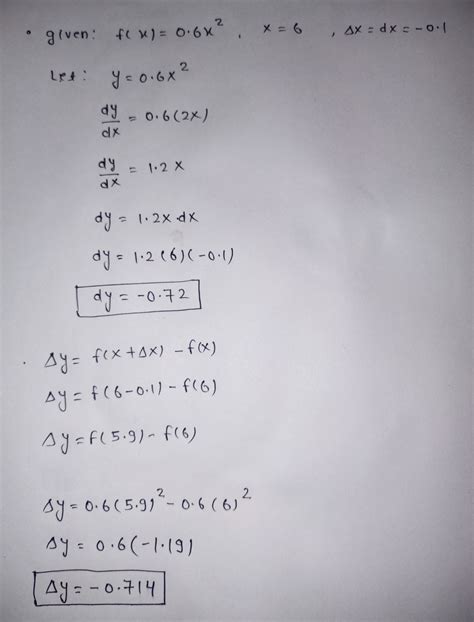 • given: f(x) = 0.6x², x = 6, Δx = dx = -0.1
Let: y = 0.6x²
dy/dx = 0.6(2x)
dy/dx = 1.2x
dy = 1.2x·dx
dy = 1.2(6)(-0.1)
dy = -0.72
. Δy = f(x+Δx) - f(x)
Δy = f(6-0.1) - f(6)
Δy = f(5.9) - f(6)
Δy = 0.6(5.9)² - 0.6(6)²
Δy = 0.6(-1.19)
Δy = -0.714